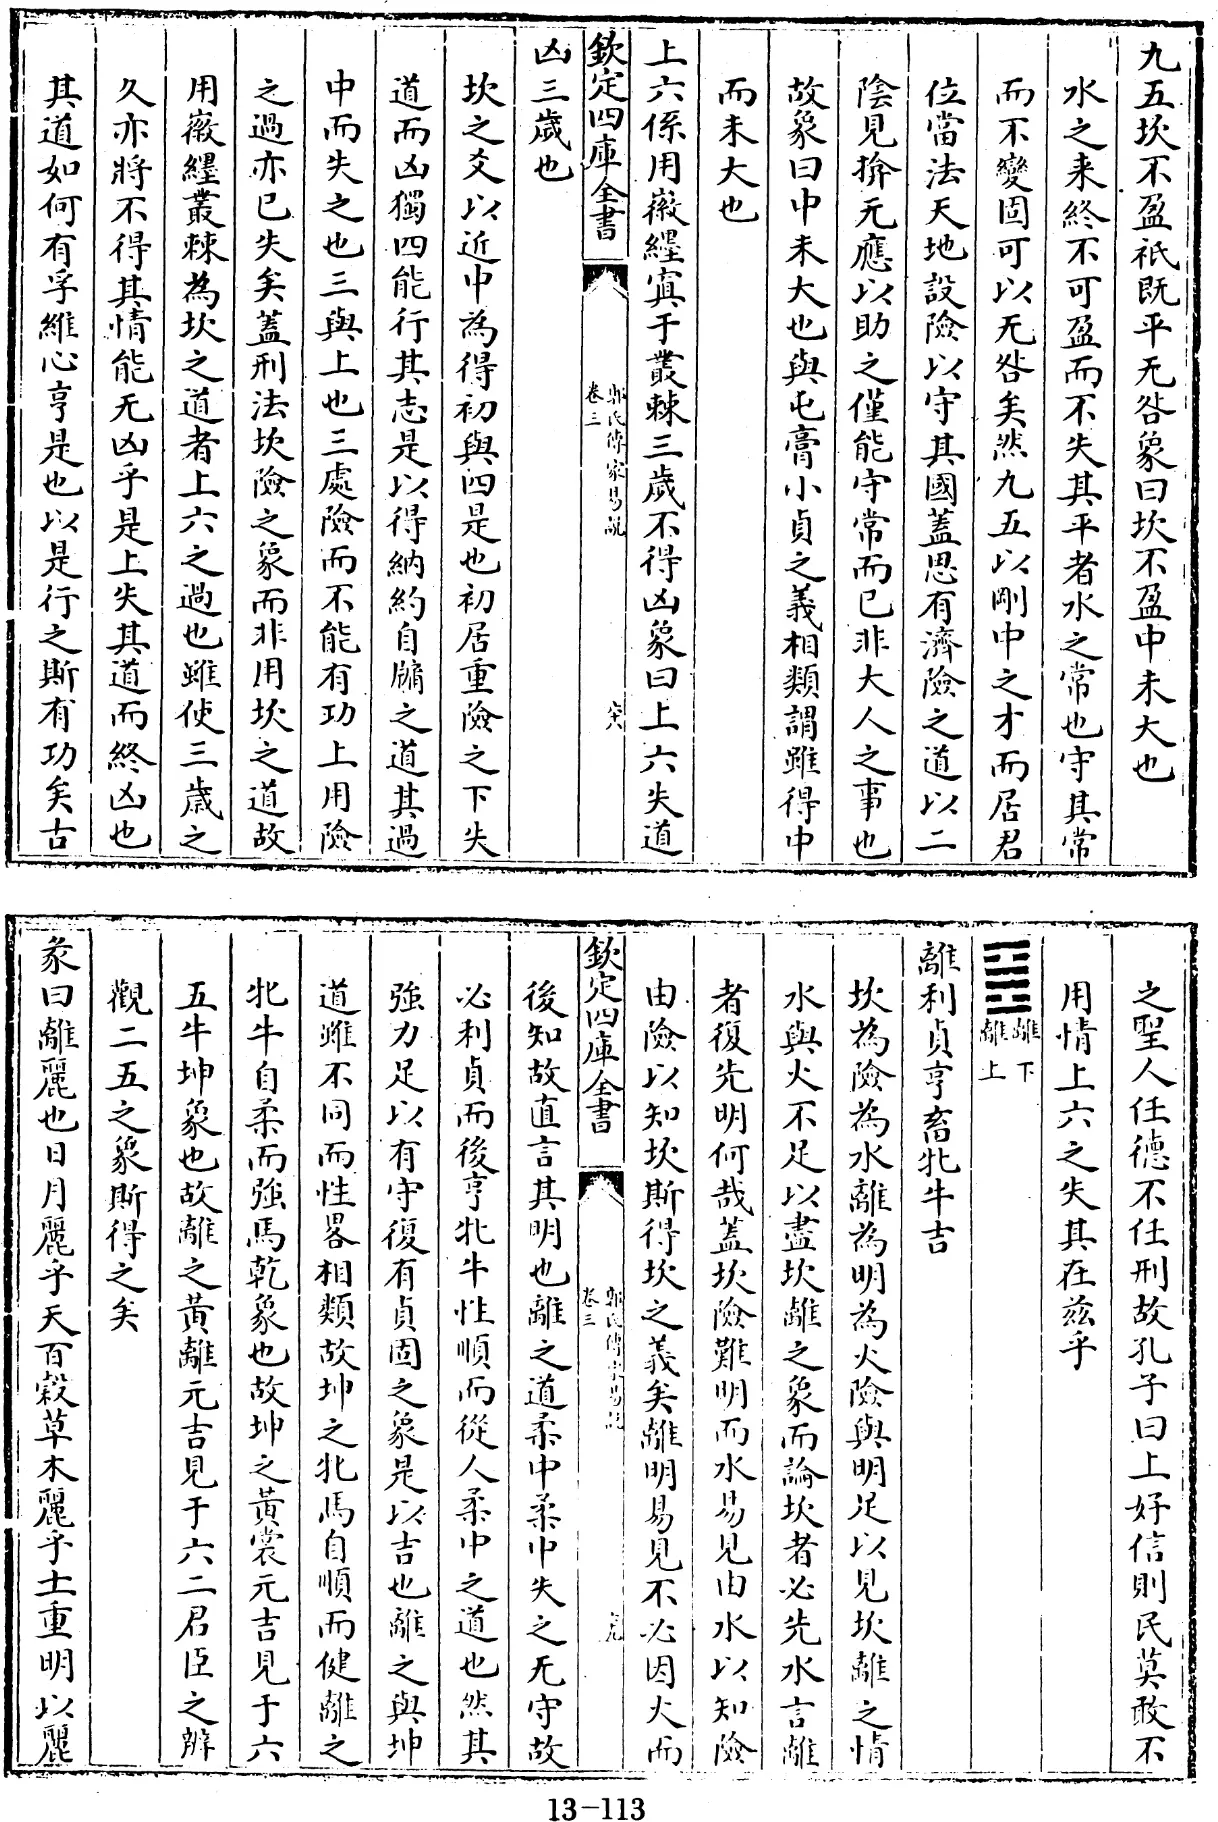 九五坎不盈祇既平无咎象曰坎不盈中未大也
水之来終不可盈而不失其平者水之常也守其常
而不變固可以无咎矣然九五以剛中之才而居君
位當法天地設險以守其國蓋思有濟險之道以二
陰見揜无應以助之僅能守常而已非大人之事也
故象曰中未大也與屯膏小貞之義相類謂雖得中
而未大也
上六係用徽纆寘于叢棘三歲不得凶象曰上六失道
欽定四庫全書
郭氏傳家易說
卷三
六八
凶三歲也
坎之爻以近中為得初與四是也初居重險之下失
道而凶獨四能行其志是以得納約自牖之道其過
中而失之也三與上也三處險而不能有功上用險
之過亦已失矣蓋刑法坎險之象而非用坎之道故
用徽纆叢棘為坎之道者上六之過也雖使三歲之
久亦將不得其情能无凶乎是上失其道而終凶也
其道如何有孚維心亨是也以是行之斯有功矣古
之聖人任德不任刑故孔子曰上好信則民莫敢不
用情上六之失其在兹乎
離下
離上
離利貞亨畜牝牛吉
坎為險為水離為明為火險與明足以見坎離之情
水與火不足以盡坎離之象而論坎者必先水言離
者復先明何哉蓋坎險難明而水易見由水以知險
由險以知坎斯得坎之義矣離明易見不必因火而
欽定四庫全書
郭氏傳家易說
卷三
六九
後知故直言其明也離之道柔中柔中失之无守故
必利貞而後亨牝牛性順而從人柔中之道也然其
強力足以有守復有貞固之象是以吉也離之與坤
道雖不同而性畧相類故坤之牝馬自順而健離之
牝牛自柔而強馬乾象也故坤之黃裳元吉見于六
五牛坤象也故離之黃離元吉見于六二君臣之辨
觀二五之象斯得之矣
彖曰離麗也日月麗乎天百穀草木麗乎土重明以麗
13-113